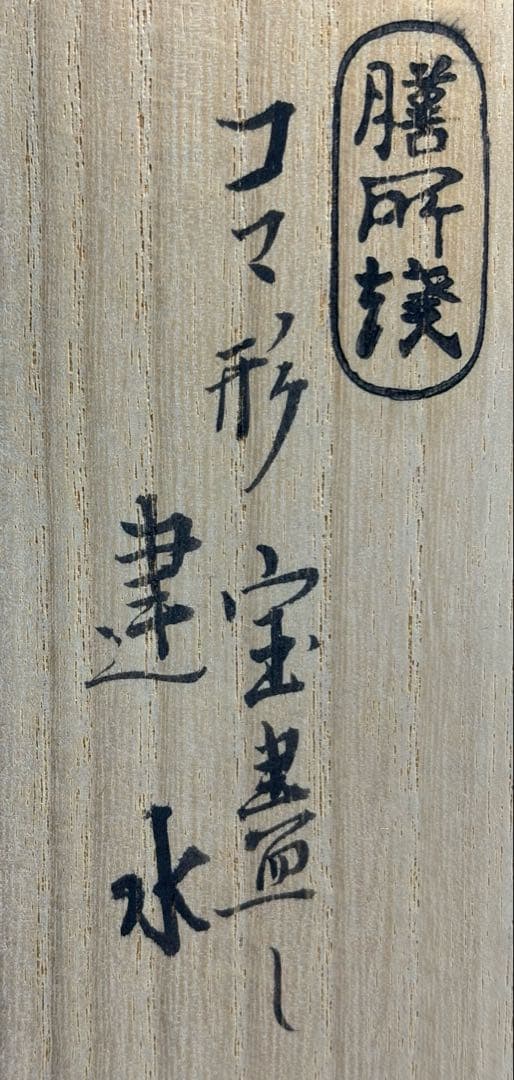 膳所焼
コマ形宝盡し
建水